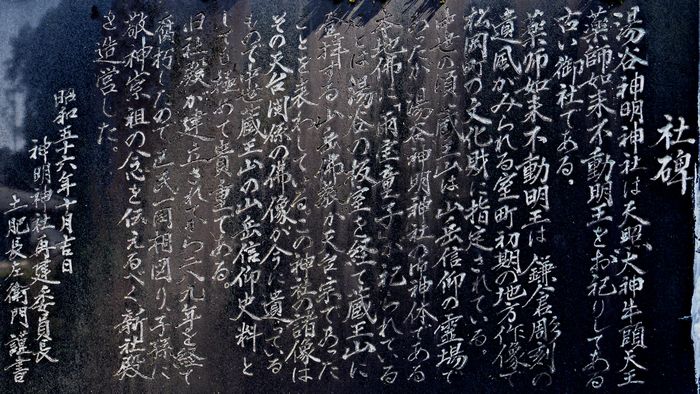 社碑
湯谷神明神社は天照大神牛頭天王
薬師如来不動明王をお祀りしてある
古い御社である。
薬師如来不動明王は鎌倉彫刻の
遺風がみられる室町初期の地方作像で
松岡町の文化財に指定されている。
中世の頃に蔵王山は山岳信仰の霊場で
あったが湯谷神明神社の御神体である
本地佛に雨宝童子が祀られている
ことは湯谷の坂室を経て蔵王山に
登拝する山岳佛教が天台宗であった
ことを表わしているこの神社の諸像は
その天台関係の佛像が今に遺っている
もので中世蔵王山の山岳信仰史料と
しても極めて貴重である
旧社殿が建立されてから二九年を経て
腐朽したので区民一同相図り子孫に
敬神崇祖の念を伝えるべく新社殿
を造営した。
昭和五十六年十月吉日
神明神社再建委員長
土肥長左衛門謹書